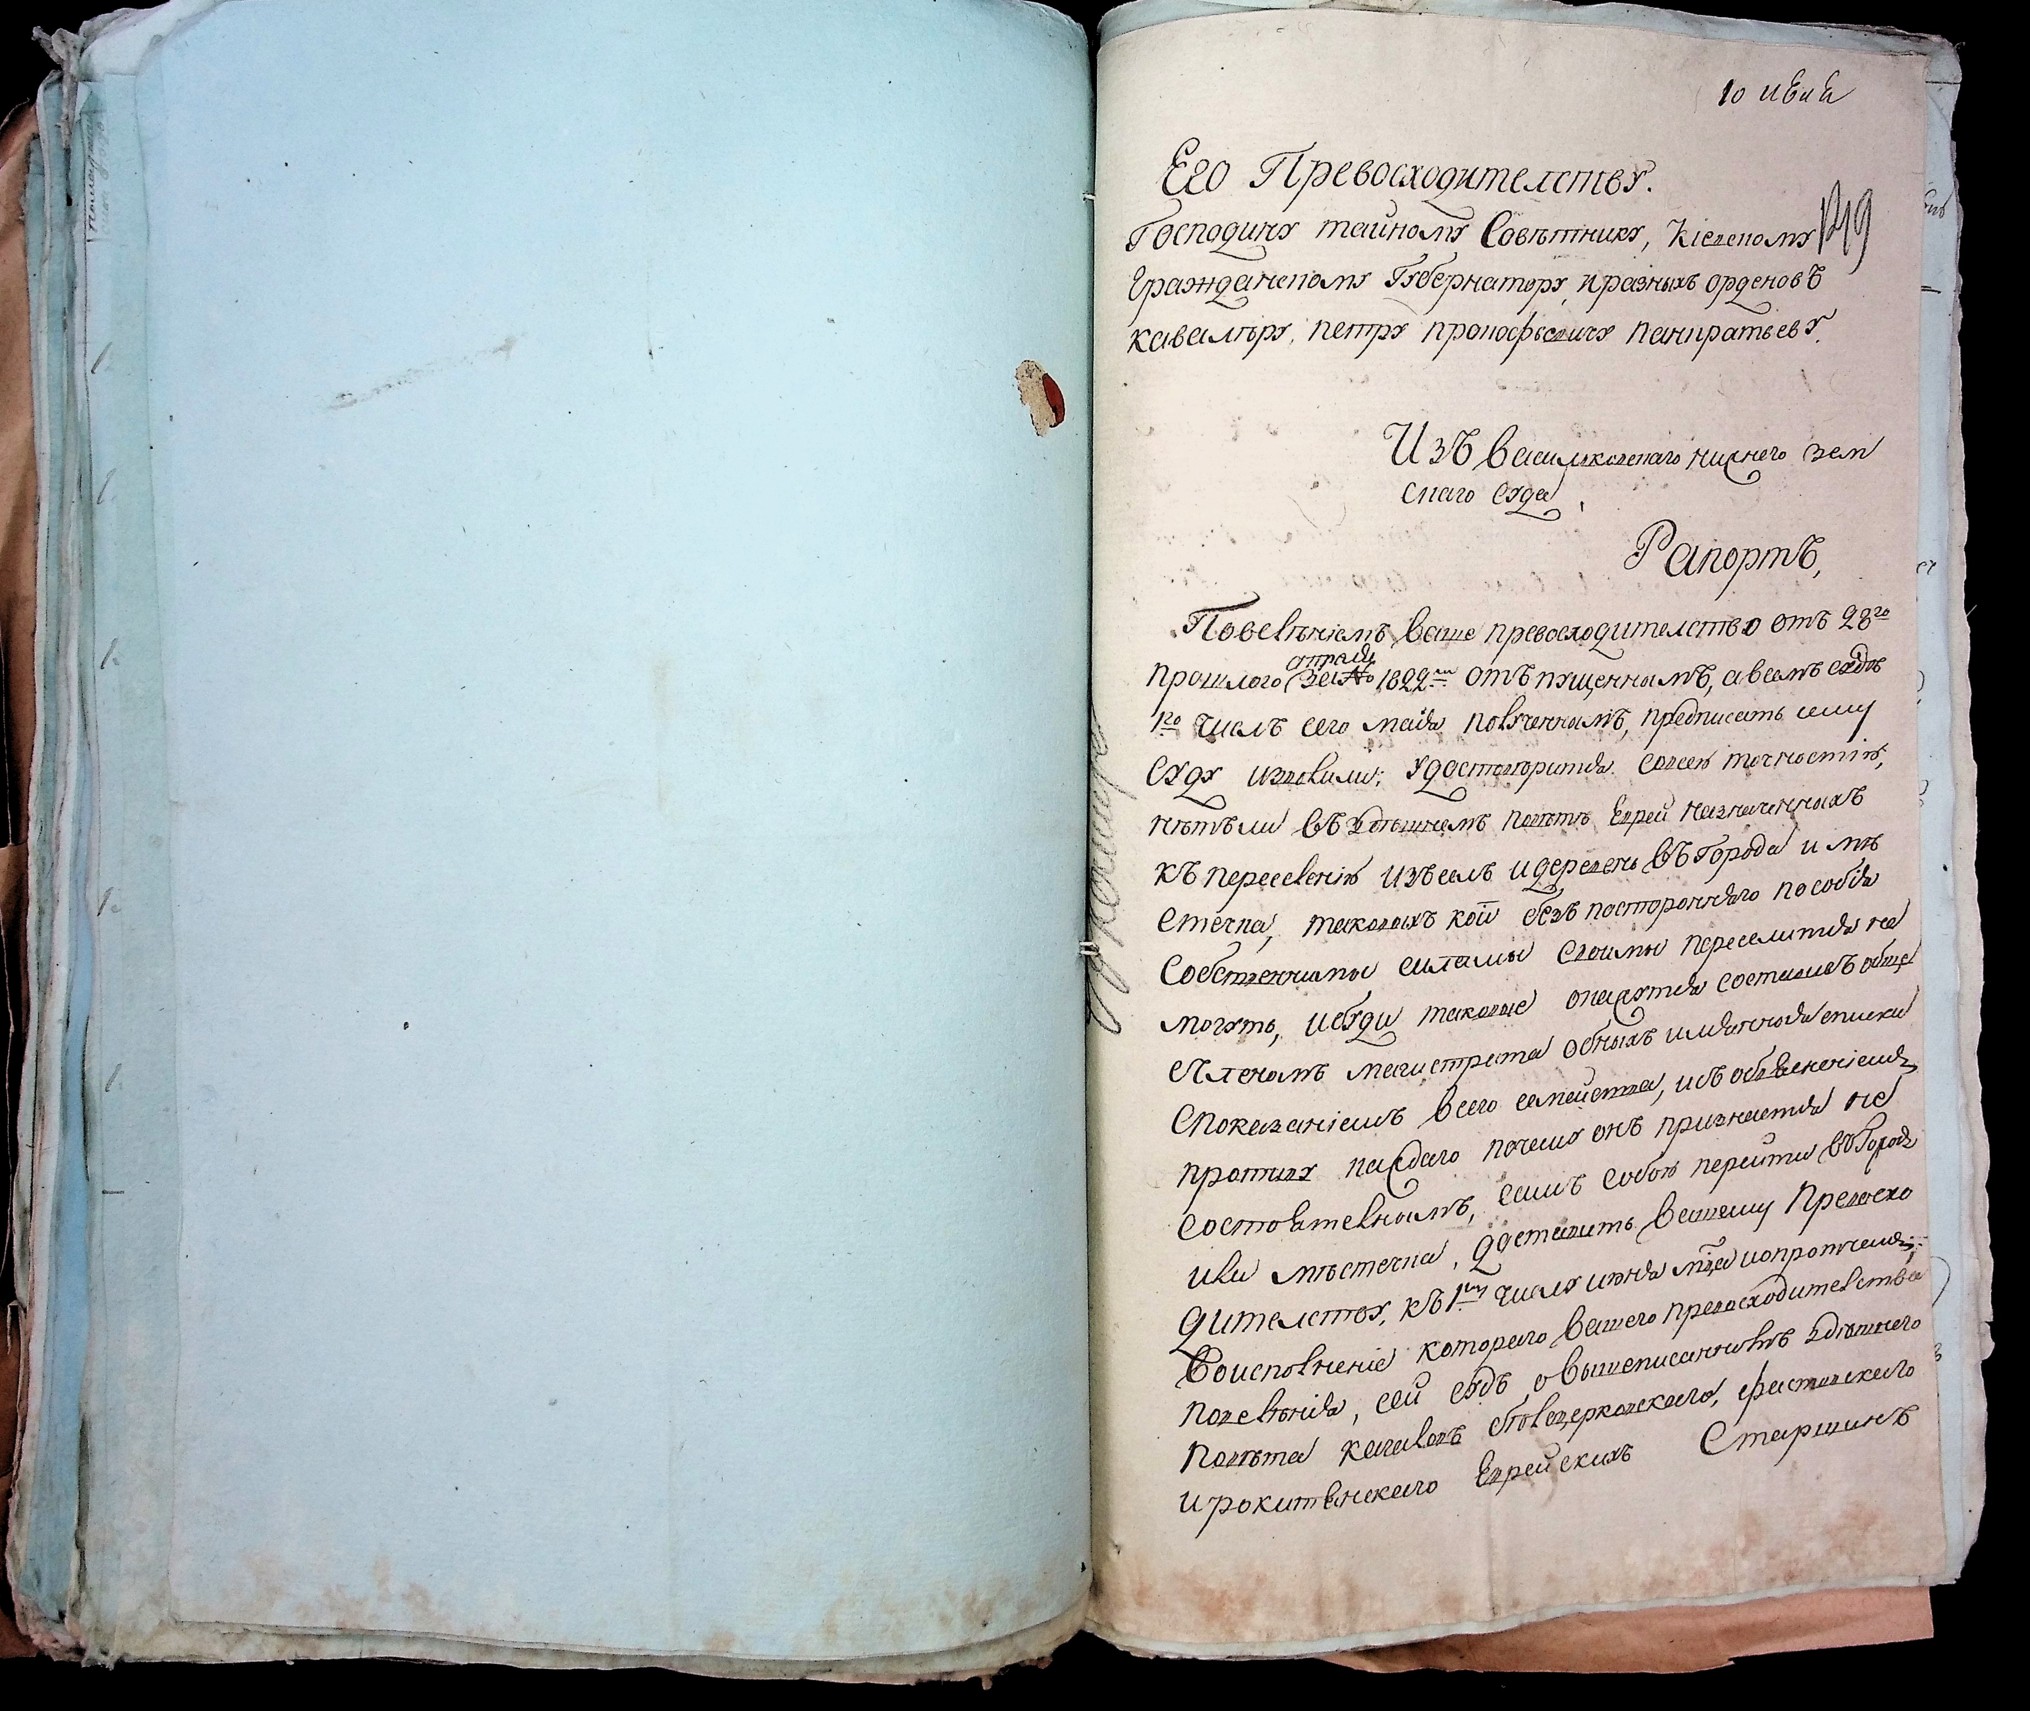 10 июня
Его Превосходителству.
Господину тайному Советнику, Кіевскому
Гражданскому Губернатору, и разныхъ орденовъ
кавалѣру, петру прокофьевичу панкратьеву.
Изъ василковскаго нижнего зем
скаго суда,
Рапортъ,
Повелѣніемъ ваше превосходителство отъ 28го
априля
прошлого 1822го отъпущеннымъ, а в семъ судѣ
1го числъ сего маія полученнымъ, предписать сему
Суду изволили; удостоворится совсею точностію,
нѣтъли въ здѣшнемъ повѣтѣ Еврей назначенныхъ
къ переселенію изъ селъ и деревень въ Города и мѣ
стечка, таковыхъ кой безъ посторонняго пособія
Собственнимы силамы своимы переселится не
могутъ, и буди таковые окажутся составивъ обще
с Членомъ магистрата обныхъ имянноя списки
споказаніемъ всего семейства, и съ объясненіемъ
противу каждого почему онъ признается не
состоятелнымъ, самъ собою перейти въ Города
или мѣстечка, доставить вашему Превосхо
дителству, къ 1му числу июня мца и опротчемъ;
Воисполненіе котораго вашего превосходителства
повелѣнія, сей судъ о вышеписанномъ здѣшнего
повѣта кагаловъ бѣлоцерковскаго, фастовскаго
и рокитянскаго Еврейскихъ Старшинъ